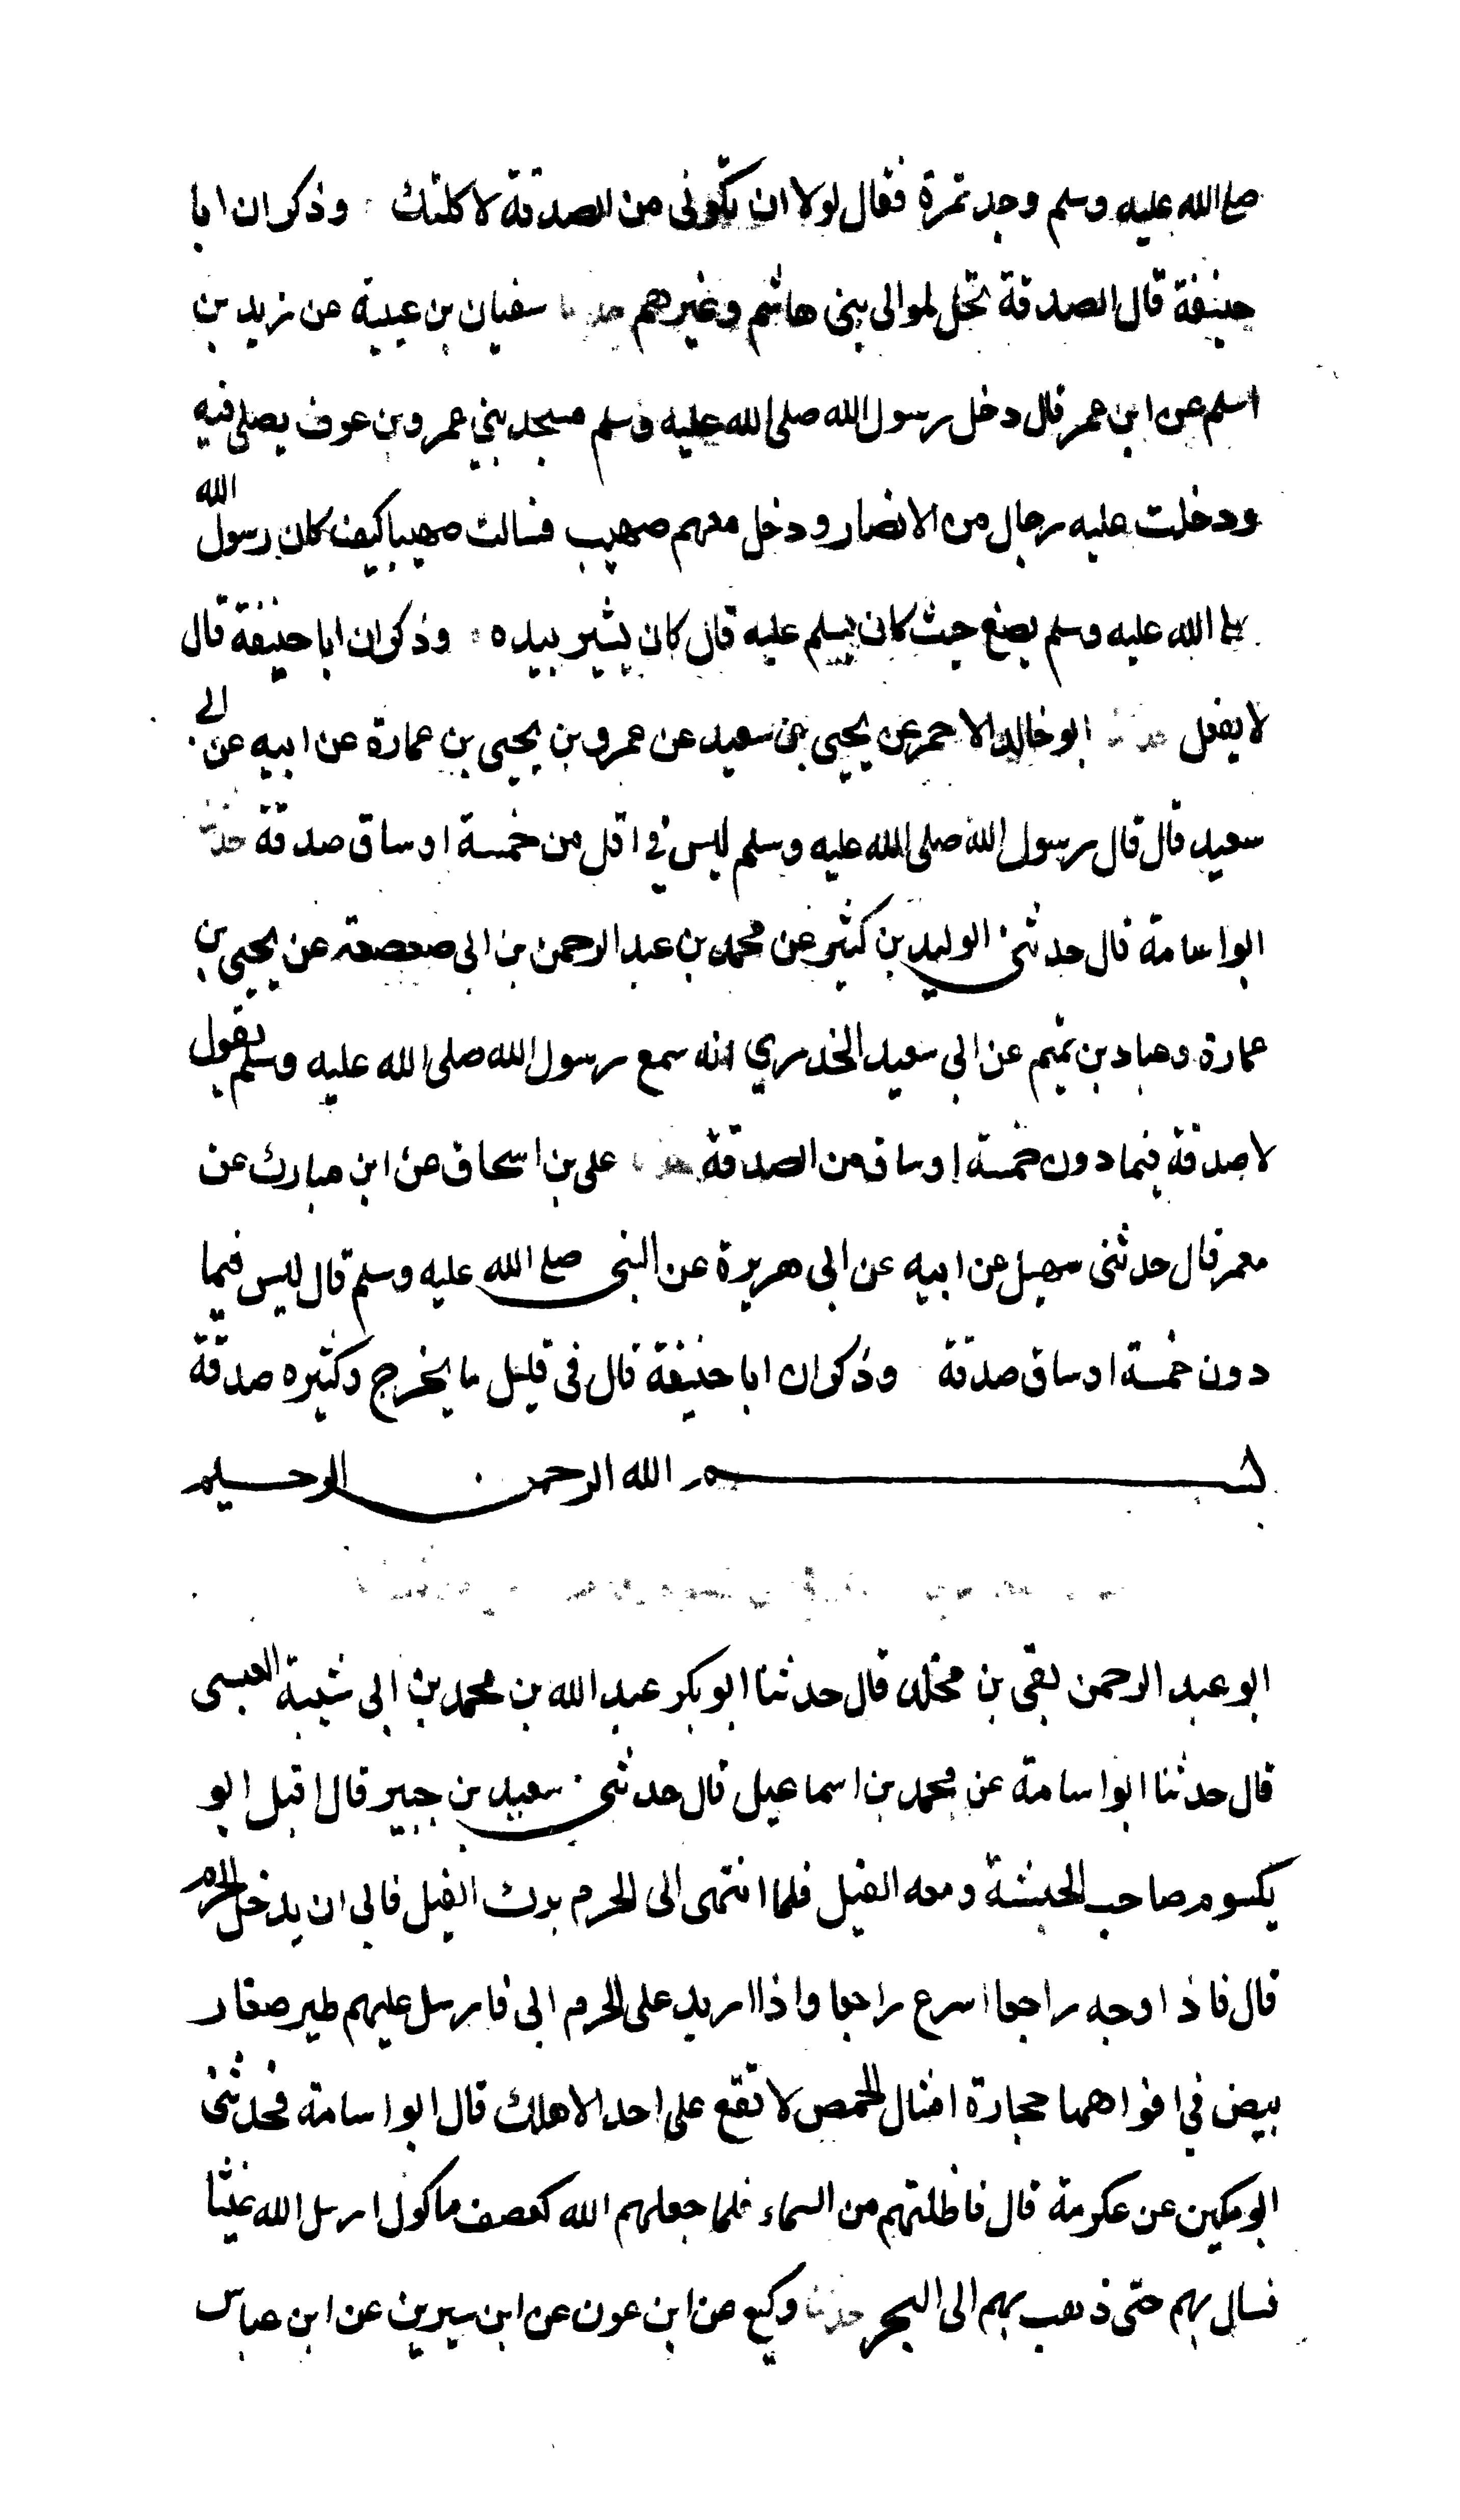 صلى الله عليه وسلم وجد تمرة فقال لولا ان تكونى من الصدقة لاكلتك وذكر ان ابا
حنيفة قال الصدقة تحل لموالى بنى هاشم وغيرهم حدثنا سفيان بن عيينة عن زيد بن
اسلم عن ابن عمر قال دخل رسول الله صلى الله عليه وسلم مسجد بني عمرو بن عوف يصلى فيه
ودخلت عليه رجال من الانصار ودخل معهم صهيب فسالت صهيبا كيف كان رسول الله
صلى الله عليه وسلم يصنع حيث كان يسلم عليه قال كان يشير بيده وذكر ان ابا حنيفة قال
لا يفعل حدثنا ابو خالد الاحمر عن يحيى بن سعيد عن عمرو بن يحيى بن عمارة عن ابيه عن ابي
سعيد قال قال رسول الله صلى الله عليه وسلم ليس في اقل من خمسة اوساق صدقة حدثنا
ابو اسامة قال حدثنى الوليد بن كثير عن محمد بن عبد الرحمن بن ابى صعصعة عن يحيى بن
عمارة وعباد بن تميم عن ابى سعيد الخدري انه سمع رسول الله صلى الله عليه وسلم يقول
لا صدقة فيما دون خمسة اوساق من الصدقة حدثنا على بن اسحاق عن ابن مبارك عن
معمر قال حدثنى سهيل عن ابيه عن ابى هريرة عن النبى صلى الله عليه وسلم قال ليس فيما
دون خمسة اوساق صدقة وذكر ان ابا حنيفة قال فى قليل ما يخرج وكثيره صدقة
بسم الله الرحمن الرحيم
ابو عبد الرحمن بقى بن مخلد قال حدثنا ابو بكر عبد الله بن محمد بن ابى شيبة العبسى
قال حدثنا ابو اسامة عن محمد بن اسماعيل قال حدثنى سعيد بن جبير قال اقبل ابو
يكسوم صاحب الحبشة ومعه الفيل فلما انتهى الى الحرم برك الفيل فابى ان يدخل الحرم
قال فاذا وجه راجعا اسرع راجعا واذا اريد على الحرم ابى فارسل عليهم طير صغار
بيض في افواهها حجارة امثال الحمص لا تقع على احد الا هلك قال ابو اسامة فحدثنى
ابو مكين عن عكرمة قال فاظلتهم من السماء فلما جعلهم الله كعصف ماكول ارسل الله غيثا
فسال بهم حتى ذهب بهم الى البحر حدثنا وكيع عن ابن عون عن ابن سيرين عن ابن عباس